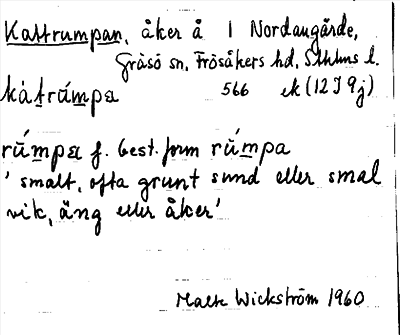 Kattrumpan, åker å 1 Nordangårde,
Gräsö sn, Frösåkers hd, Sthlms l.
kàtrúmpa 566 ek (12 I 9 j)
rúmpa f. best. form rúmpa
' smalt, ofta grunt sund eller smal
vik, äng eller åker'
Malte Wickström 1960